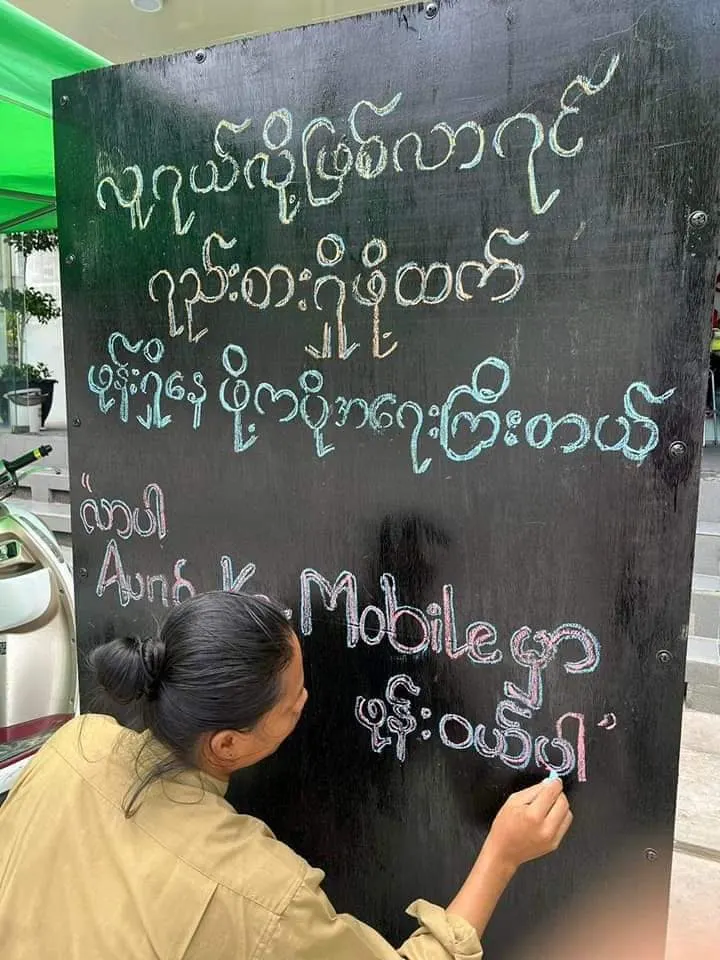 လူငယ်လို့ဖြစ်လာရင်
ရည်းစားရှိဖို့ထက်
ဖုန်းရှိနေဖို့ကပိုအရေးကြီးတယ်
“လာပါ
Aung Mobile မှာ
ဖုန်းဝယ်ပါ”